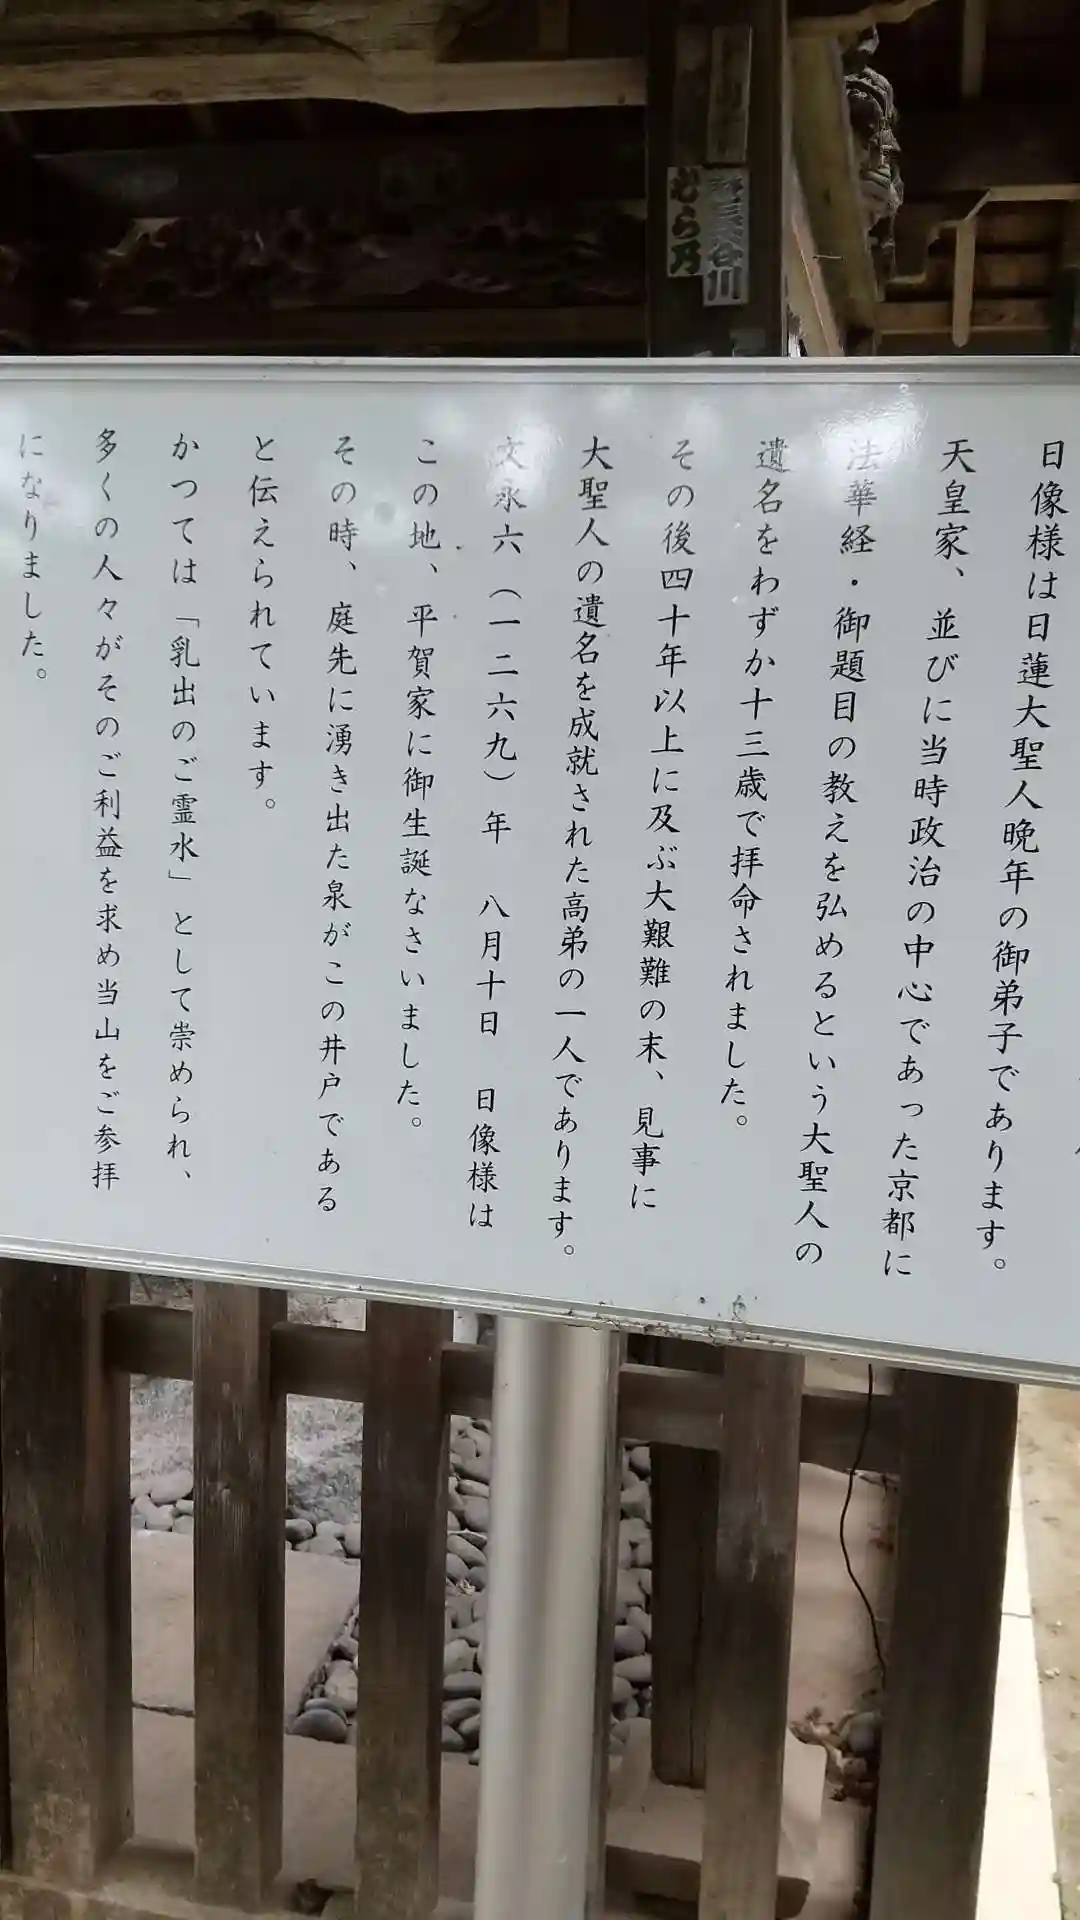 日像様は日蓮大聖人晩年の御弟子であります。
天皇家、並びに当時政治の中心であった京都に
法華経・御題目の教えを弘めるという大聖人の
遺名をわずか十三歳で拝命されました。
その後四十年以上に及ぶ大艱難の末、見事に
大聖人の遺名を成就された高弟の一人であります。
文永六（一二六九）年　八月十日　日像様は
この地、平賀家に御生誕なさいました。
その時、庭先に湧き出た泉がこの井戸である
と伝えられています。
かつては「乳出のご霊水」として崇められ、
多くの人々がそのご利益を求め当山をご参拝
になりました。
長谷川
むら乃